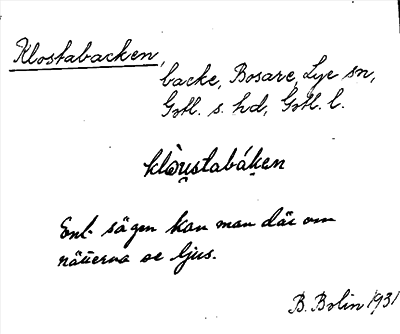 Klostabacken,
backe, Bosare, Lye sn,
Gotl. s. hd, Gotl. l.
klòu̯stabák̬en
Enl. sägen kan man där om
nätterna se ljus.
B. Bolin 1931